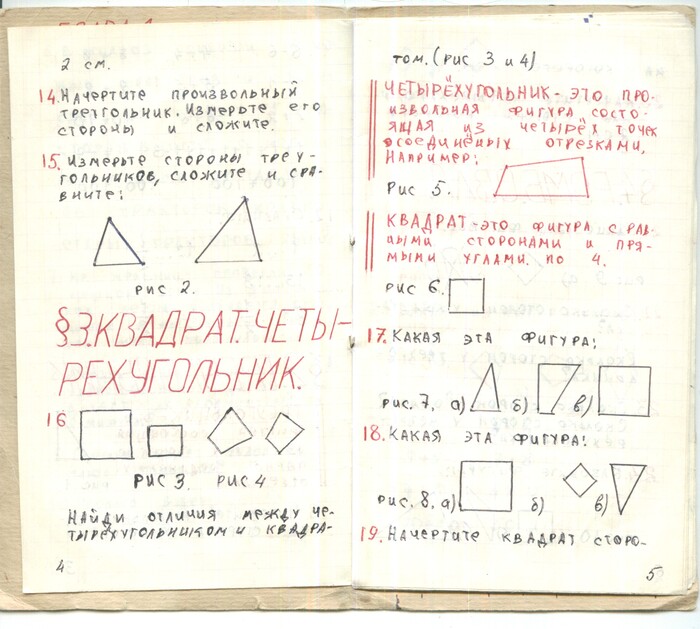 2 см.
14. Начертите произвольный
треугольник. Измерьте его
стороны и сложите.
15. Измерьте стороны треу-
гольников, сложите и сра-
вните:
рис 2.
§3. КВАДРАТ. ЧЕТЫ-
РЕХУГОЛЬНИК.
16
рис 3. рис 4
Найди отличия между че-
тырёхугольником и квадра-
4
том. (рис 3 и 4)
ЧЕТЫРЁХУГОЛЬНИК - ЭТО ПРО-
ИЗВОЛЬНАЯ ФИГУРА СОСТО-
ЯЩАЯ ИЗ ЧЕТЫРЁХ ТОЧЕК
ОСОЕДИНЁНЫХ ОТРЕЗКАМИ,
НАПРИМЕР:
рис 5.
КВАДРАТ - ЭТО ФИГУРА С РАВ-
НЫМИ СТОРОНАМИ И ПРЯ-
МЫМИ УГЛАМИ. ПО 4.
рис 6.
17. Какая эта фигура:
рис. 7. а) б) в)
18. Какая эта фигура:
рис. 8. а) б) в)
19. Начертите квадрат сторо-
5